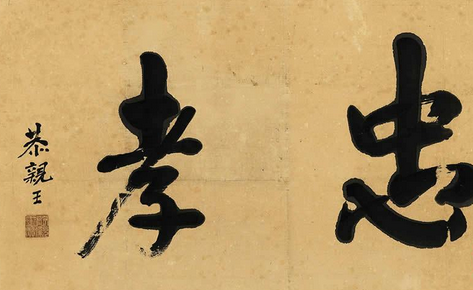 忠孝
恭親王